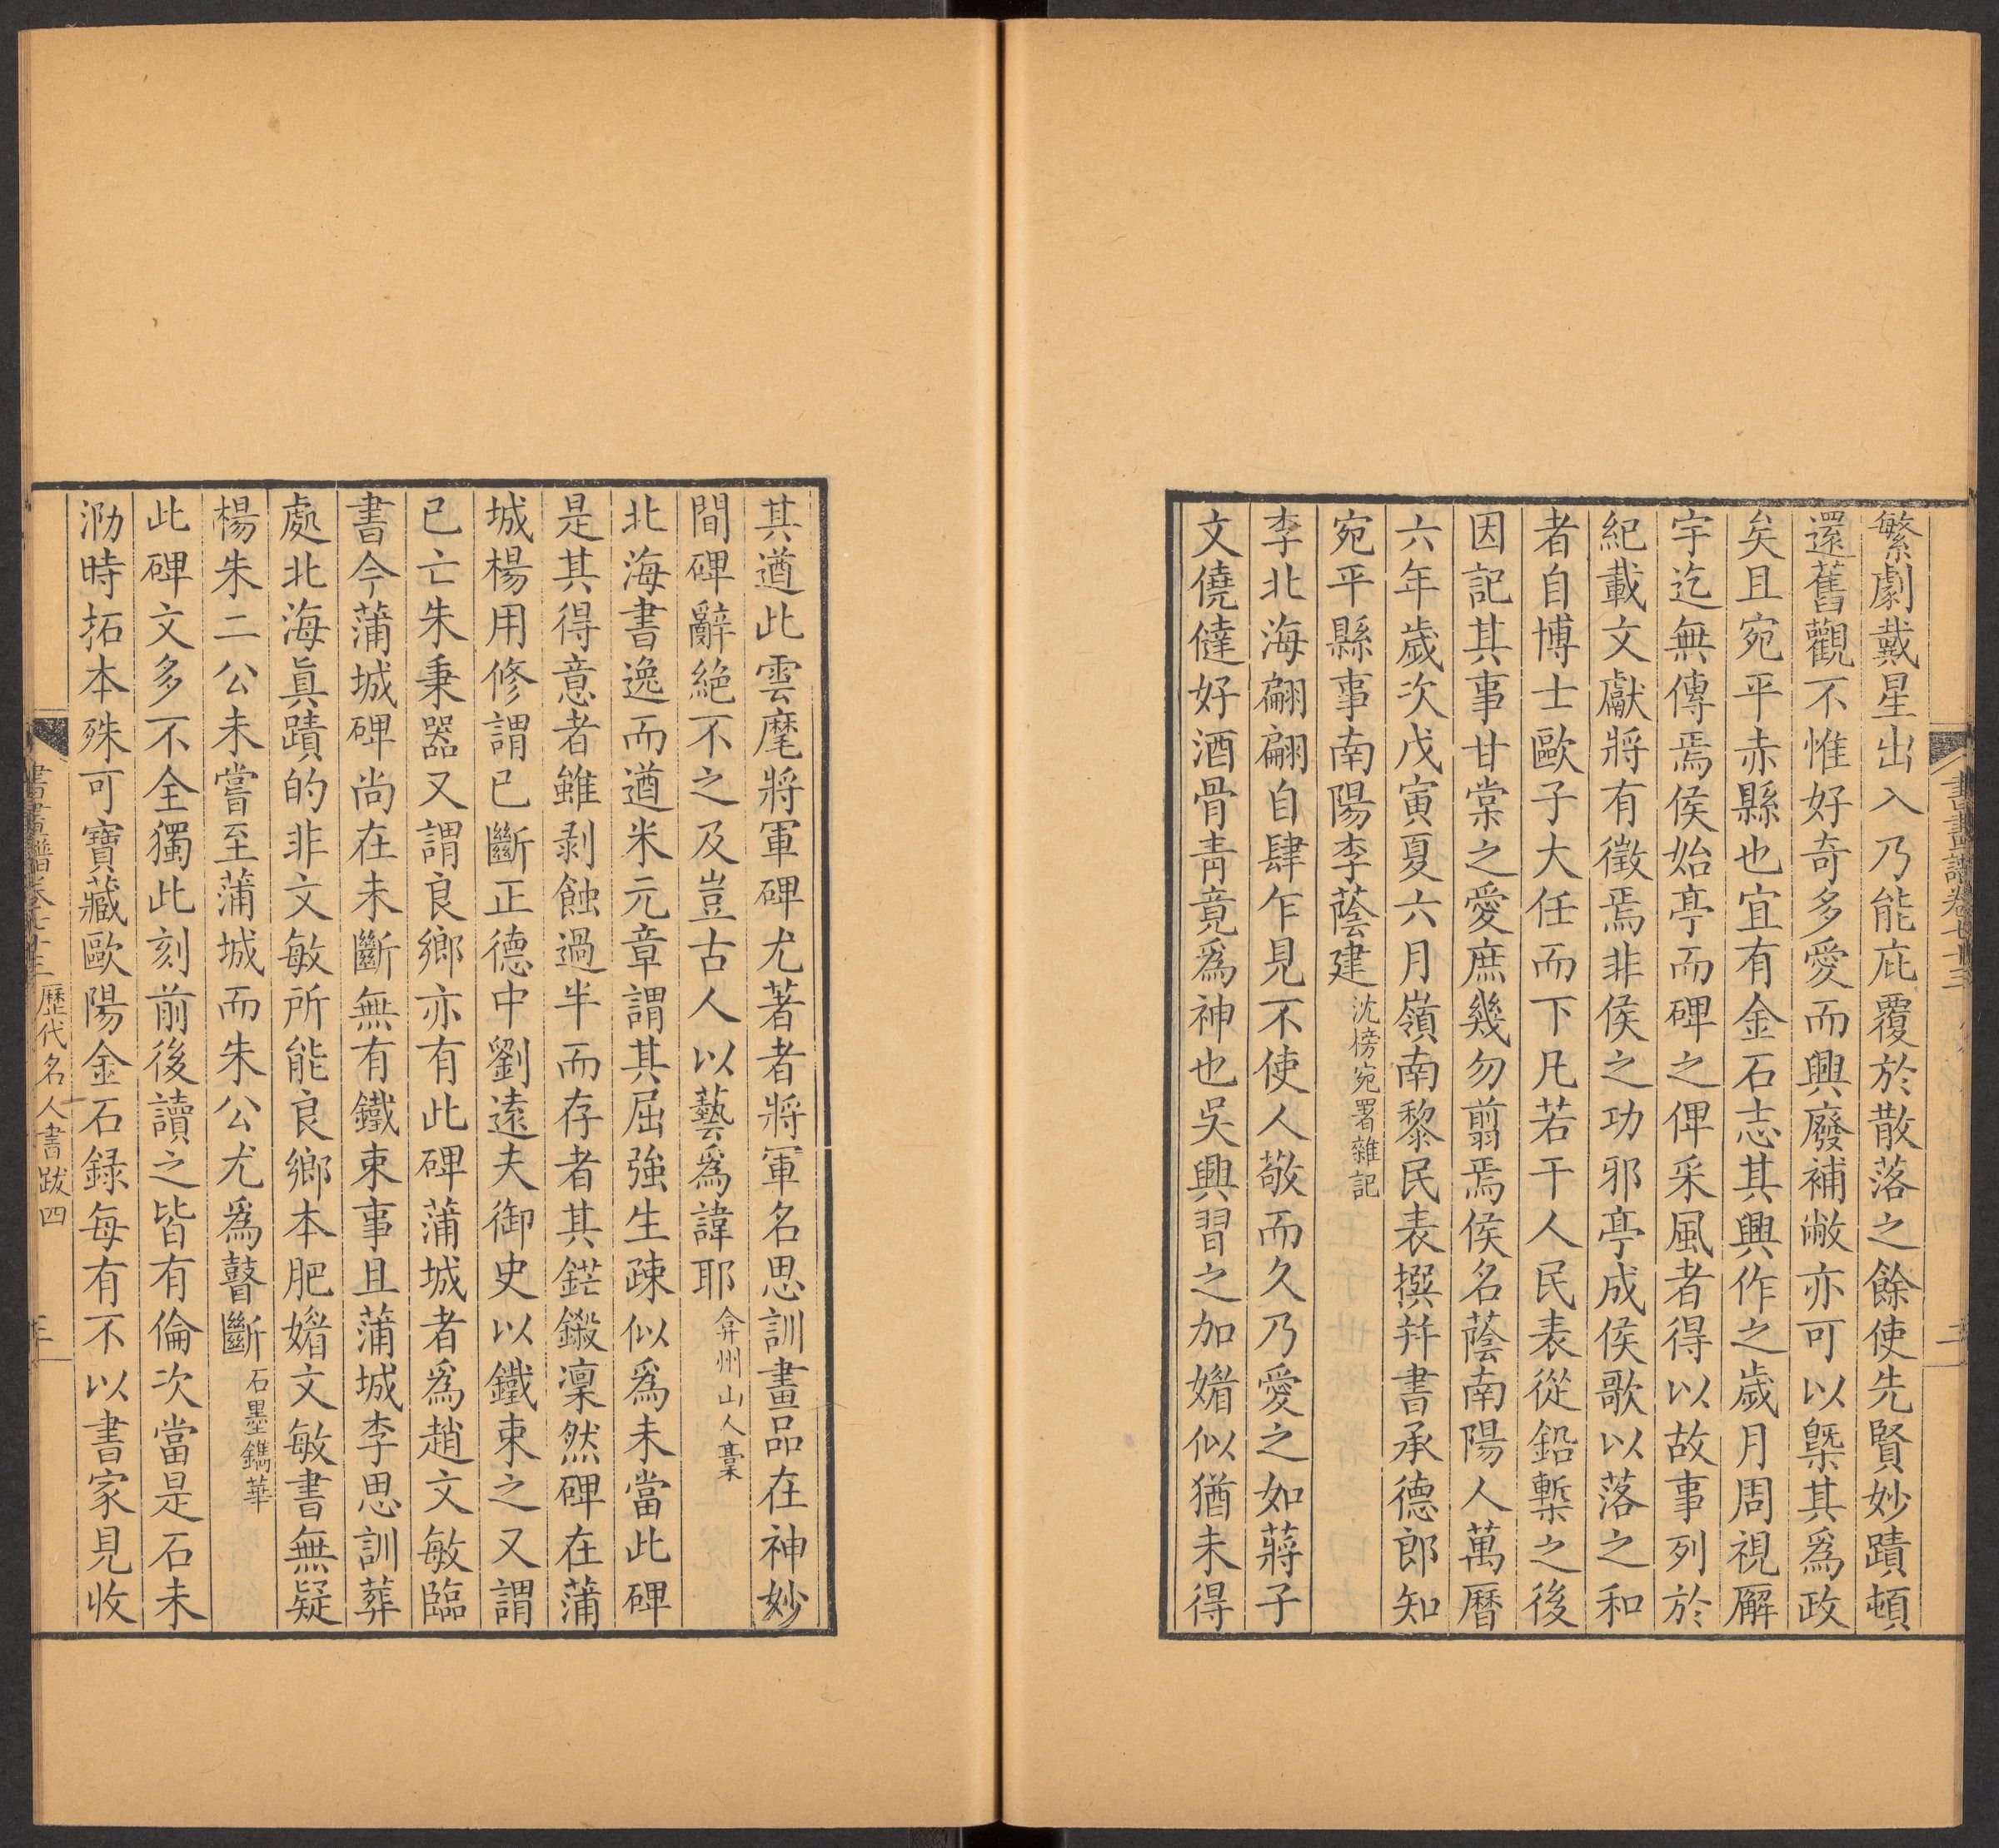 繁劇戴星出入乃能庇覆於散落之餘使先賢妙蹟頓
還舊觀不惟好奇多愛而興廢補敝亦可以槩其爲政
矣且宛平赤縣也宜有金石志其興作之歲月周視廨
宇迄無傳焉侯始亭而碑之俾采風者得以故事列於
紀載文獻將有徵焉非侯之功邪亭成侯歌以落之和
者自博士歐子大任而下凡若干人民表從鉛槧之後
因記其事甘棠之愛庶幾勿翦焉侯名蔭南陽人萬曆
六年歲次戊寅夏六月嶺南黎民表撰幷書承德郎知
宛平縣事南陽李蔭建 沈榜宛署雜記
李北海翩翩自肆乍見不使人敬而久乃愛之如蔣子
文僥僐好酒骨靑竟爲神也吳興習之加媚似猶未得
其遒此雲麾將軍碑尤著者將軍名思訓畫品在神妙
間碑辭絕不之及豈古人以藝爲諱耶 弇州山人藁
北海書逸而遒米元章謂其屈強生疎似爲未當此碑
是其得意者雖剥蝕過半而存者其鋩鎩凜然碑在蒲
城楊用修謂已斷正德中劉遠夫御史以鐵束之又謂
已亡朱秉器又謂良鄉亦有此碑蒲城者爲趙文敏臨
書今蒲城碑尚在未斷無有鐵束事且蒲城李思訓葬
處北海眞蹟的非文敏所能良鄉本肥媚文敏書無疑
楊朱二公未嘗至蒲城而朱公尤爲瞽斷 石墨鐫華
此碑文多不全獨此刻前後讀之皆有倫次當是石未
泐時拓本殊可寶藏歐陽金石録每有不以書家見收
書畫譜卷七十三 歷代名人書跋四 三